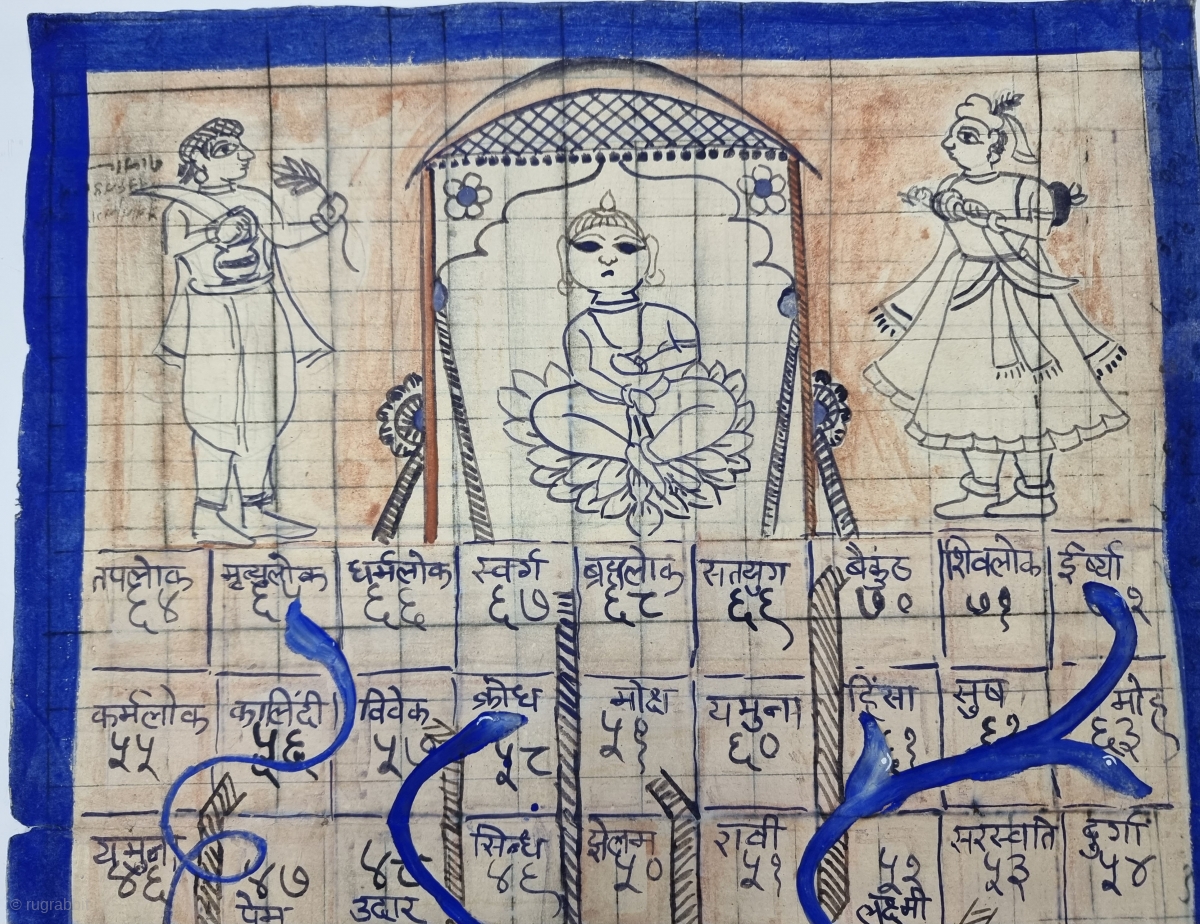 तपलोक मृत्युलोक धर्मलोक स्वर्ग ब्रह्मलोक सतयुग बैकुंठ शिवलोक ईर्ष्या
६४ ६५ ६६ ६७ ६८ ६९ ७० ७१
कर्मलोक कालिंदी विवेक क्रोध मोक्ष यमुना हिंसा सुष मोह
५५ ५६ ५७ ५८ ५९ ६० ६३
यमुना सिन्ध झेलम रावी सरस्वति दुर्गा
४६ ४७ ४८ ४९ ५० ५१ ५२ ५३ ५४
पेम उदार लक्ष्मी
© rugrab